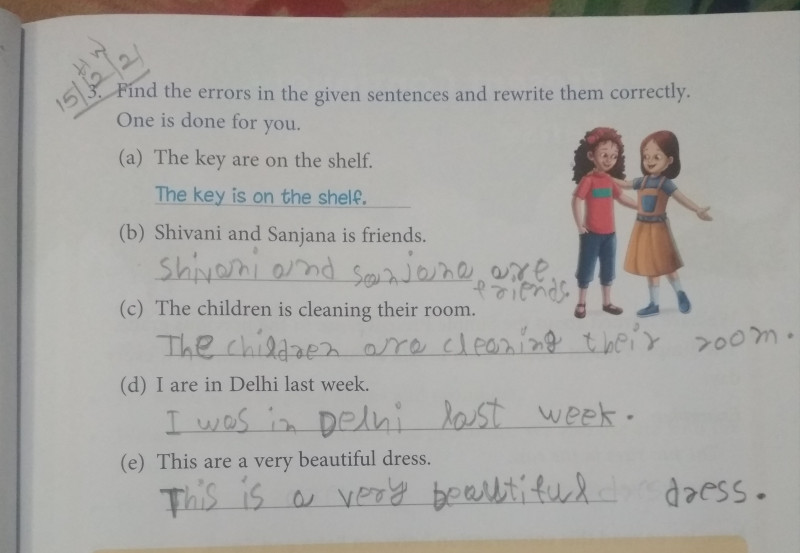 HW
15/12/21
3. Find the errors in the given sentences and rewrite them correctly.
One is done for you.
(a) The key are on the shelf.
The key is on the shelf.
(b) Shivani and Sanjana is friends.
Shivani and sanjana are
friends.
(c) The children is cleaning their room.
The children are cleaning their room.
(d) I are in Delhi last week.
I was in Delhi last week.
(e) This are a very beautiful dress.
This is a very beautiful dress.